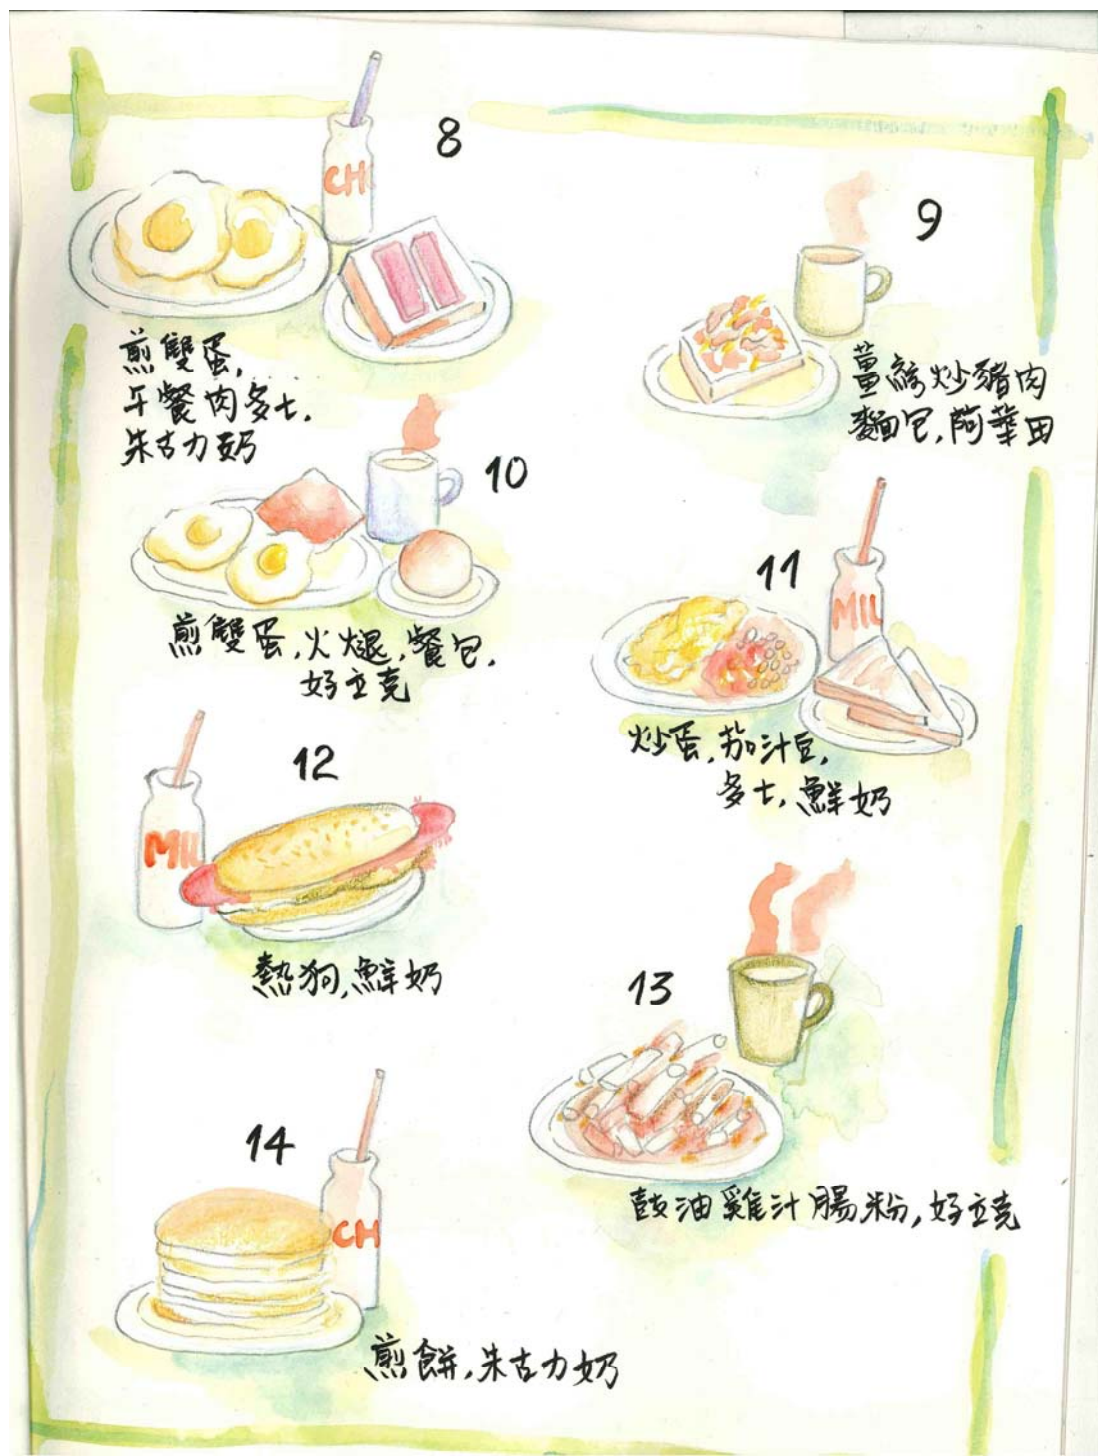 8
CH
煎雙蛋,
午餐肉多士,
朱古力奶
9
薑絲炒豬肉
麵包,阿華田
10
煎雙蛋,火腿,餐包,
好立克
11
MIL
炒蛋,茄汁豆,
多士,鮮奶
12
MIL
熱狗,鮮奶
13
豉油雞汁腸粉,好立克
14
CH
煎餅,朱古力奶